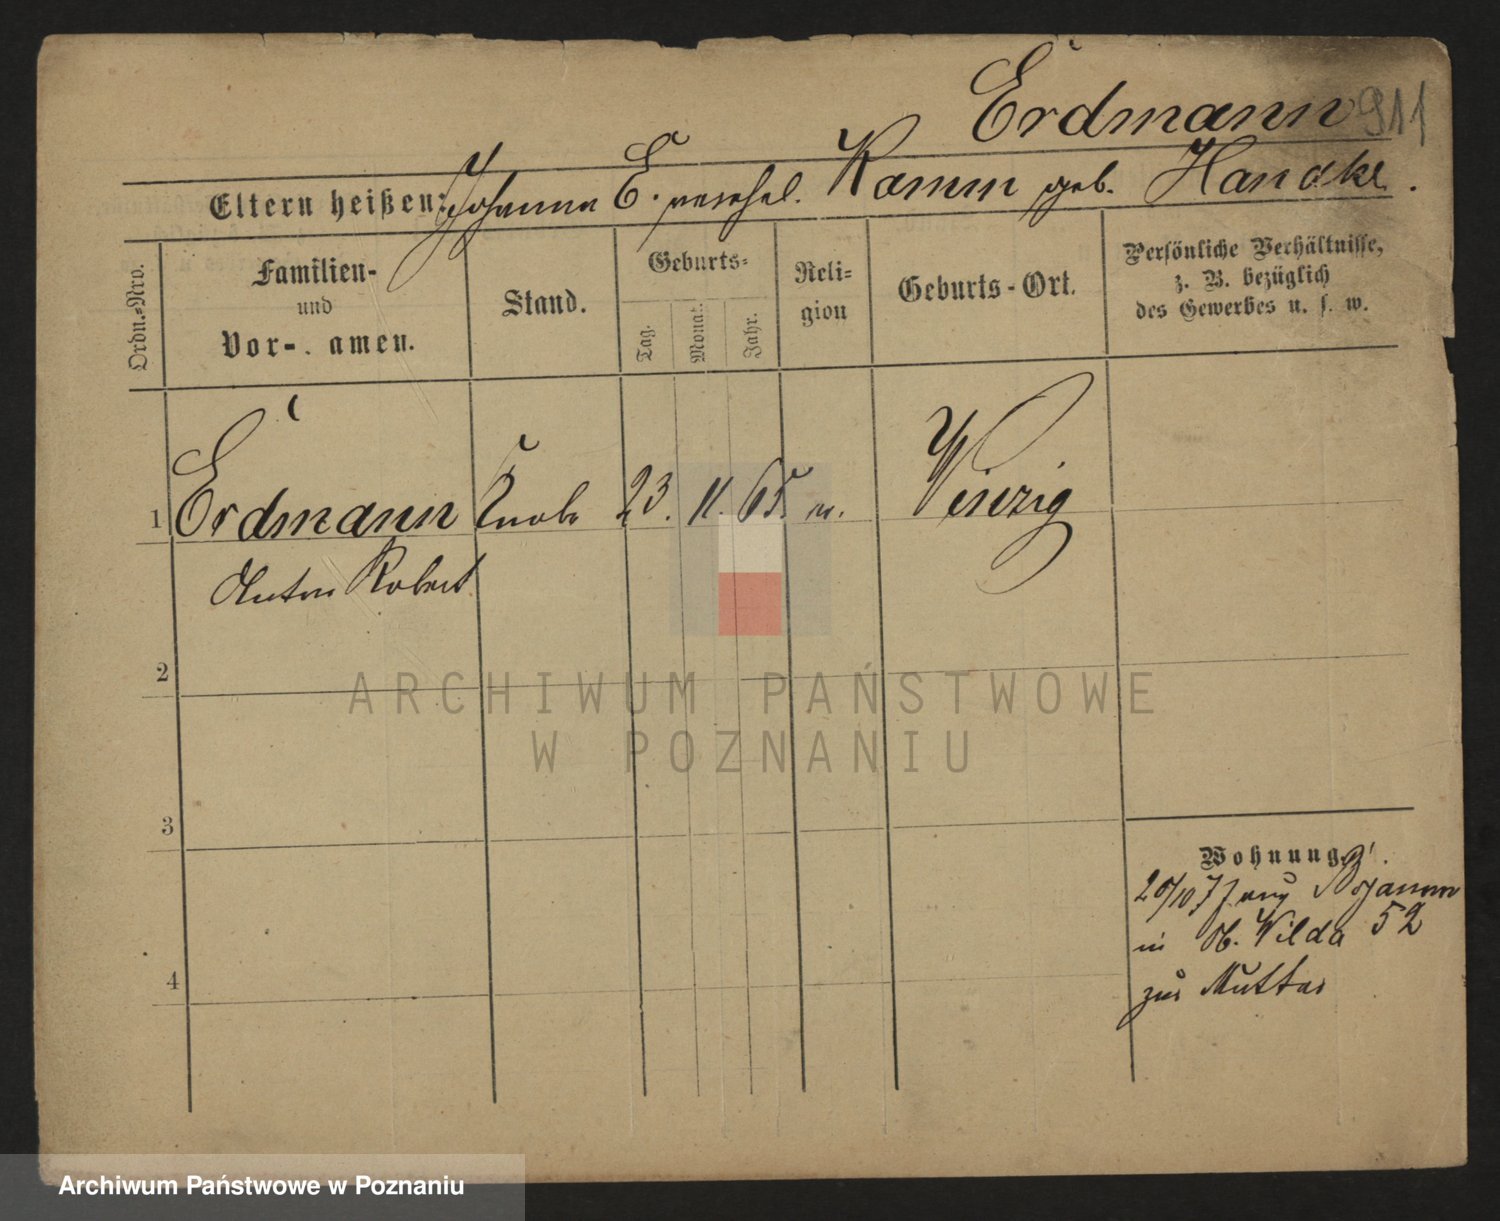 Erdmann 911
Eltern heißen: Johanna E. verehel. Kamm geb. Handke.
Ordn.-Nro.
Familien-
und
Vor- . amen.
Stand.
Geburts-
Tag.
Monat.
Jahr.
Reli-
gion
Geburts-Ort.
Persönliche Verhältnisse,
z. B. bezüglich
des Gewerbes u. s. w.
1 Erdmann Knabe 23. 11. 65. Winzig
Anton Robert
2
3
4
Wohnung
20/10 77 aus
in Ob. Wilda 52
zur Mutter
ARCHIWUM PAŃSTWOWE
W POZNANIU
Archiwum Państwowe w Poznaniu